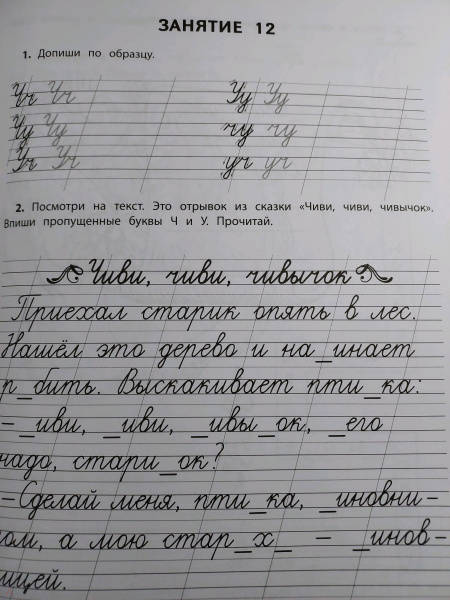 ЗАНЯТИЕ 12
1. Допиши по образцу.
Чч Чч Уу Уу
Чу Чу чу чу
Уч Уч уч уч
2. Посмотри на текст. Это отрывок из сказки «Чиви, чиви, чивычок».
Впиши пропущенные буквы Ч и У. Прочитай.
Чиви, чиви, чивычок
Приехал старик опять в лес.
Нашёл это дерево и на_инает
р_бить. Выскакивает пти_ка:
-_иви, _иви, _ивы_ок, _его
надо, стари_ок?
-Сделай меня, пти_ка, _иновни-
ком, а мою стар_х_ - _инов-
ницей.